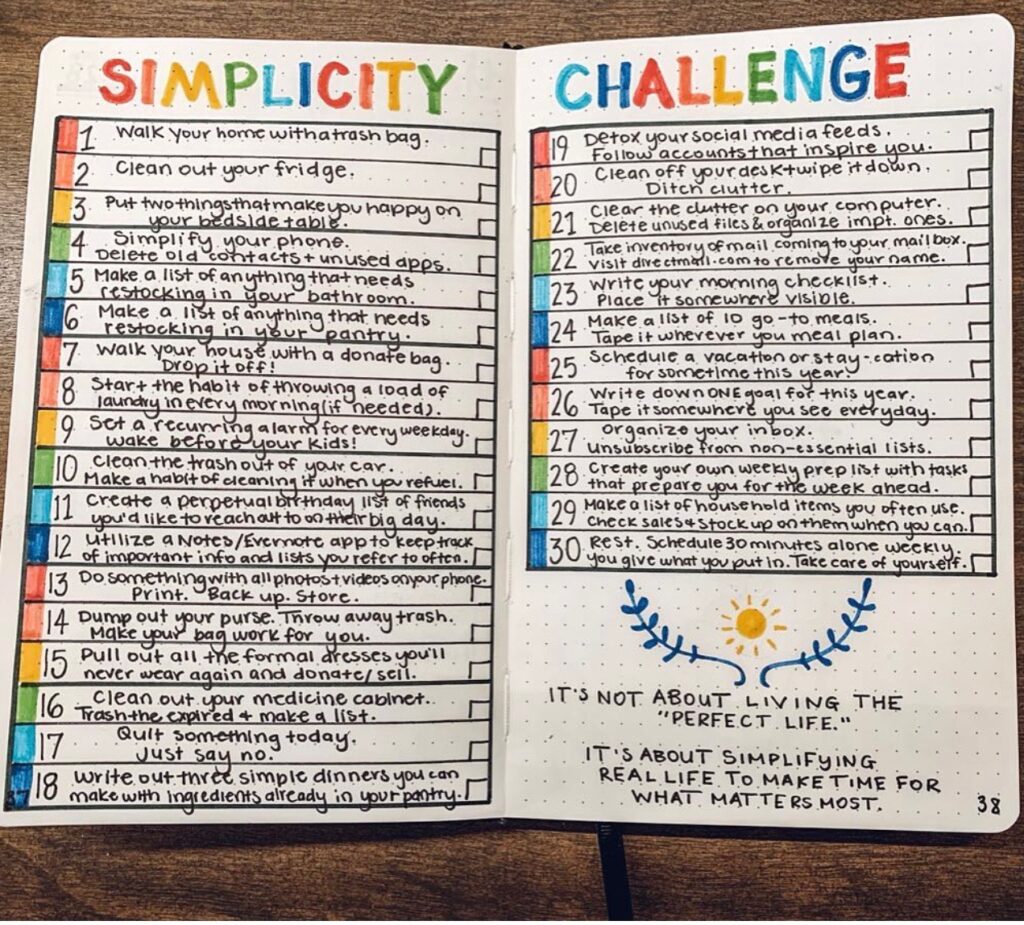 SIMPLICITY
1 Walk your home with a trash bag.
2 Clean out your fridge.
3 Put two things that make you happy on
your bedside table.
4 Simplify your phone.
Delete old contacts + unused apps.
5 Make a list of anything that needs
restocking in your bathroom.
6 Make a list of anything that needs
restocking in your pantry.
7 Walk your house with a donate bag.
Drop it off!
8 Start the habit of throwing a load of
laundry in every morning (if needed).
9 Set a recurring alarm for every weekday.
wake before your kids!
10 Clean the trash out of your car.
Make a habit of cleaning it when you refuel.
11 Create a perpetual birthday list of friends
you'd like to reach out to on their big day.
12 Utilize a Notes/Evernote app to keep track
of important info and lists you refer to often.
13 Do something with all photos + videos on your phone.
Print. Back up. Store.
14 Dump out your purse. Throw away trash.
Make your bag work for you.
15 Pull out all the formal dresses you'll
never wear again and donate/sell.
16 Clean out your medicine cabinet.
Trash the expired + make a list.
17 Quit something today.
Just say no.
18 Write out three simple dinners you can
make with ingredients already in your pantry.
CHALLENGE
19 Detox your social media feeds.
Follow accounts that inspire you.
20 Clean off your desk + wipe it down.
Ditch clutter.
21 Clear the clutter on your computer.
Delete unused files & organize impt. ones.
22 Take inventory of mail coming to your mail box.
visit directmail.com to remove your name.
23 Write your morning checklist.
Place it somewhere visible.
24 Make a list of 10 go-to meals.
Tape it wherever you meal plan.
25 Schedule a vacation or stay-cation
for sometime this year!
26 Write down ONE goal for this year.
Tape it somewhere you see everyday.
27 Organize your inbox.
Unsubscribe from non-essential lists.
28 Create your own weekly prep list with tasks
that prepare you for the week ahead.
29 Make a list of household items you often use.
Check sales + stock up on them when you can.
30 Rest. Schedule 30 minutes alone weekly.
you give what you put in. Take care of yourself.
IT'S NOT ABOUT LIVING THE
"PERFECT LIFE."
IT'S ABOUT SIMPLIFYING
REAL LIFE TO MAKE TIME FOR
WHAT MATTERS MOST.
38